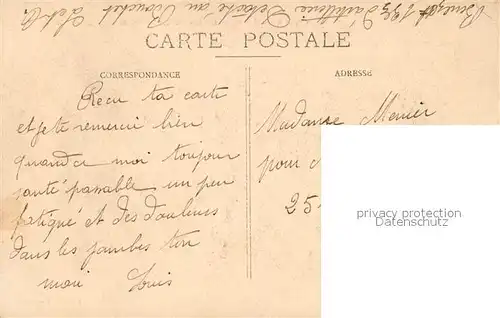 d'artillerie Détaché au Bouchet
CARTE POSTALE
CORRESPONDANCE
ADRESSE
Recu ta carte
et je te remerci bien
quand a moi toujour
santé passable un peu
fatigué et des douleurs
dans les jambes ton
mari Louis
Madame Menier
pour
25
privacy protection
Datenschutz